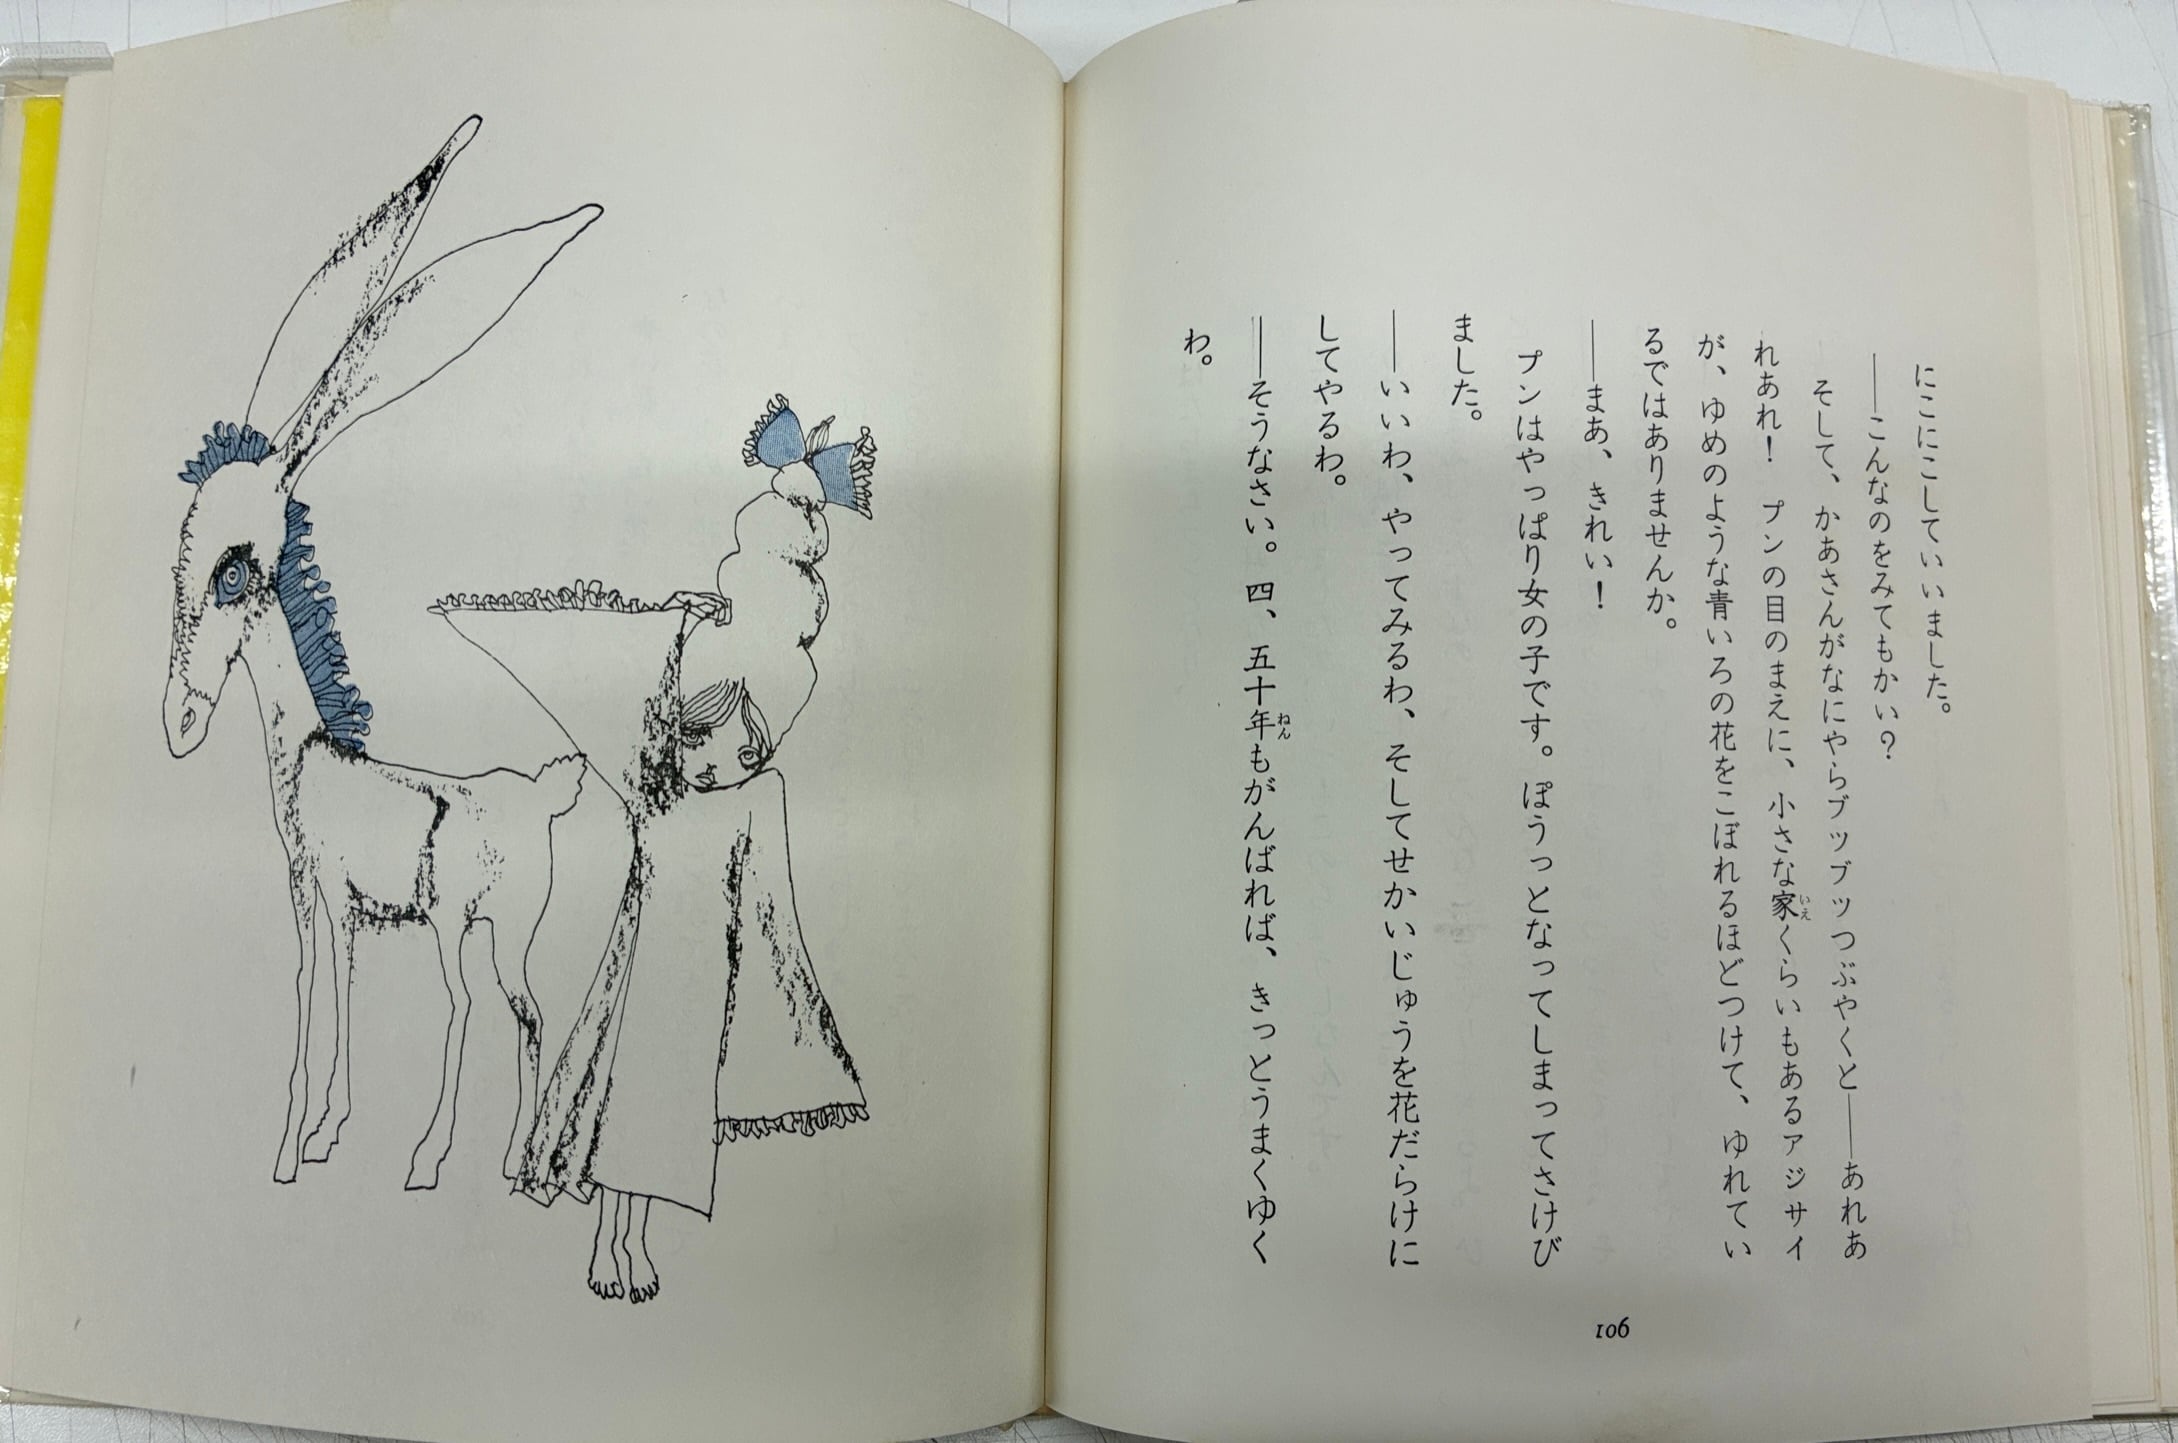 にこにこしていいました。
――こんなのをみてもかい？
そして、かあさんがなにやらブツブツつぶやくと――あれあ
れあれ！　プンの目のまえに、小さな家いえくらいもあるアジサイ
が、ゆめのような青いろの花をこぼれるほどつけて、ゆれてい
るではありませんか。
――まあ、きれい！
プンはやっぱり女の子です。ぽうっとなってしまってさけび
ました。
――いいわ、やってみるわ、そしてせかいじゅうを花だらけに
してやるわ。
――そうなさい。四、五十年ねんもがんばれば、きっとうまくゆく
わ。
106